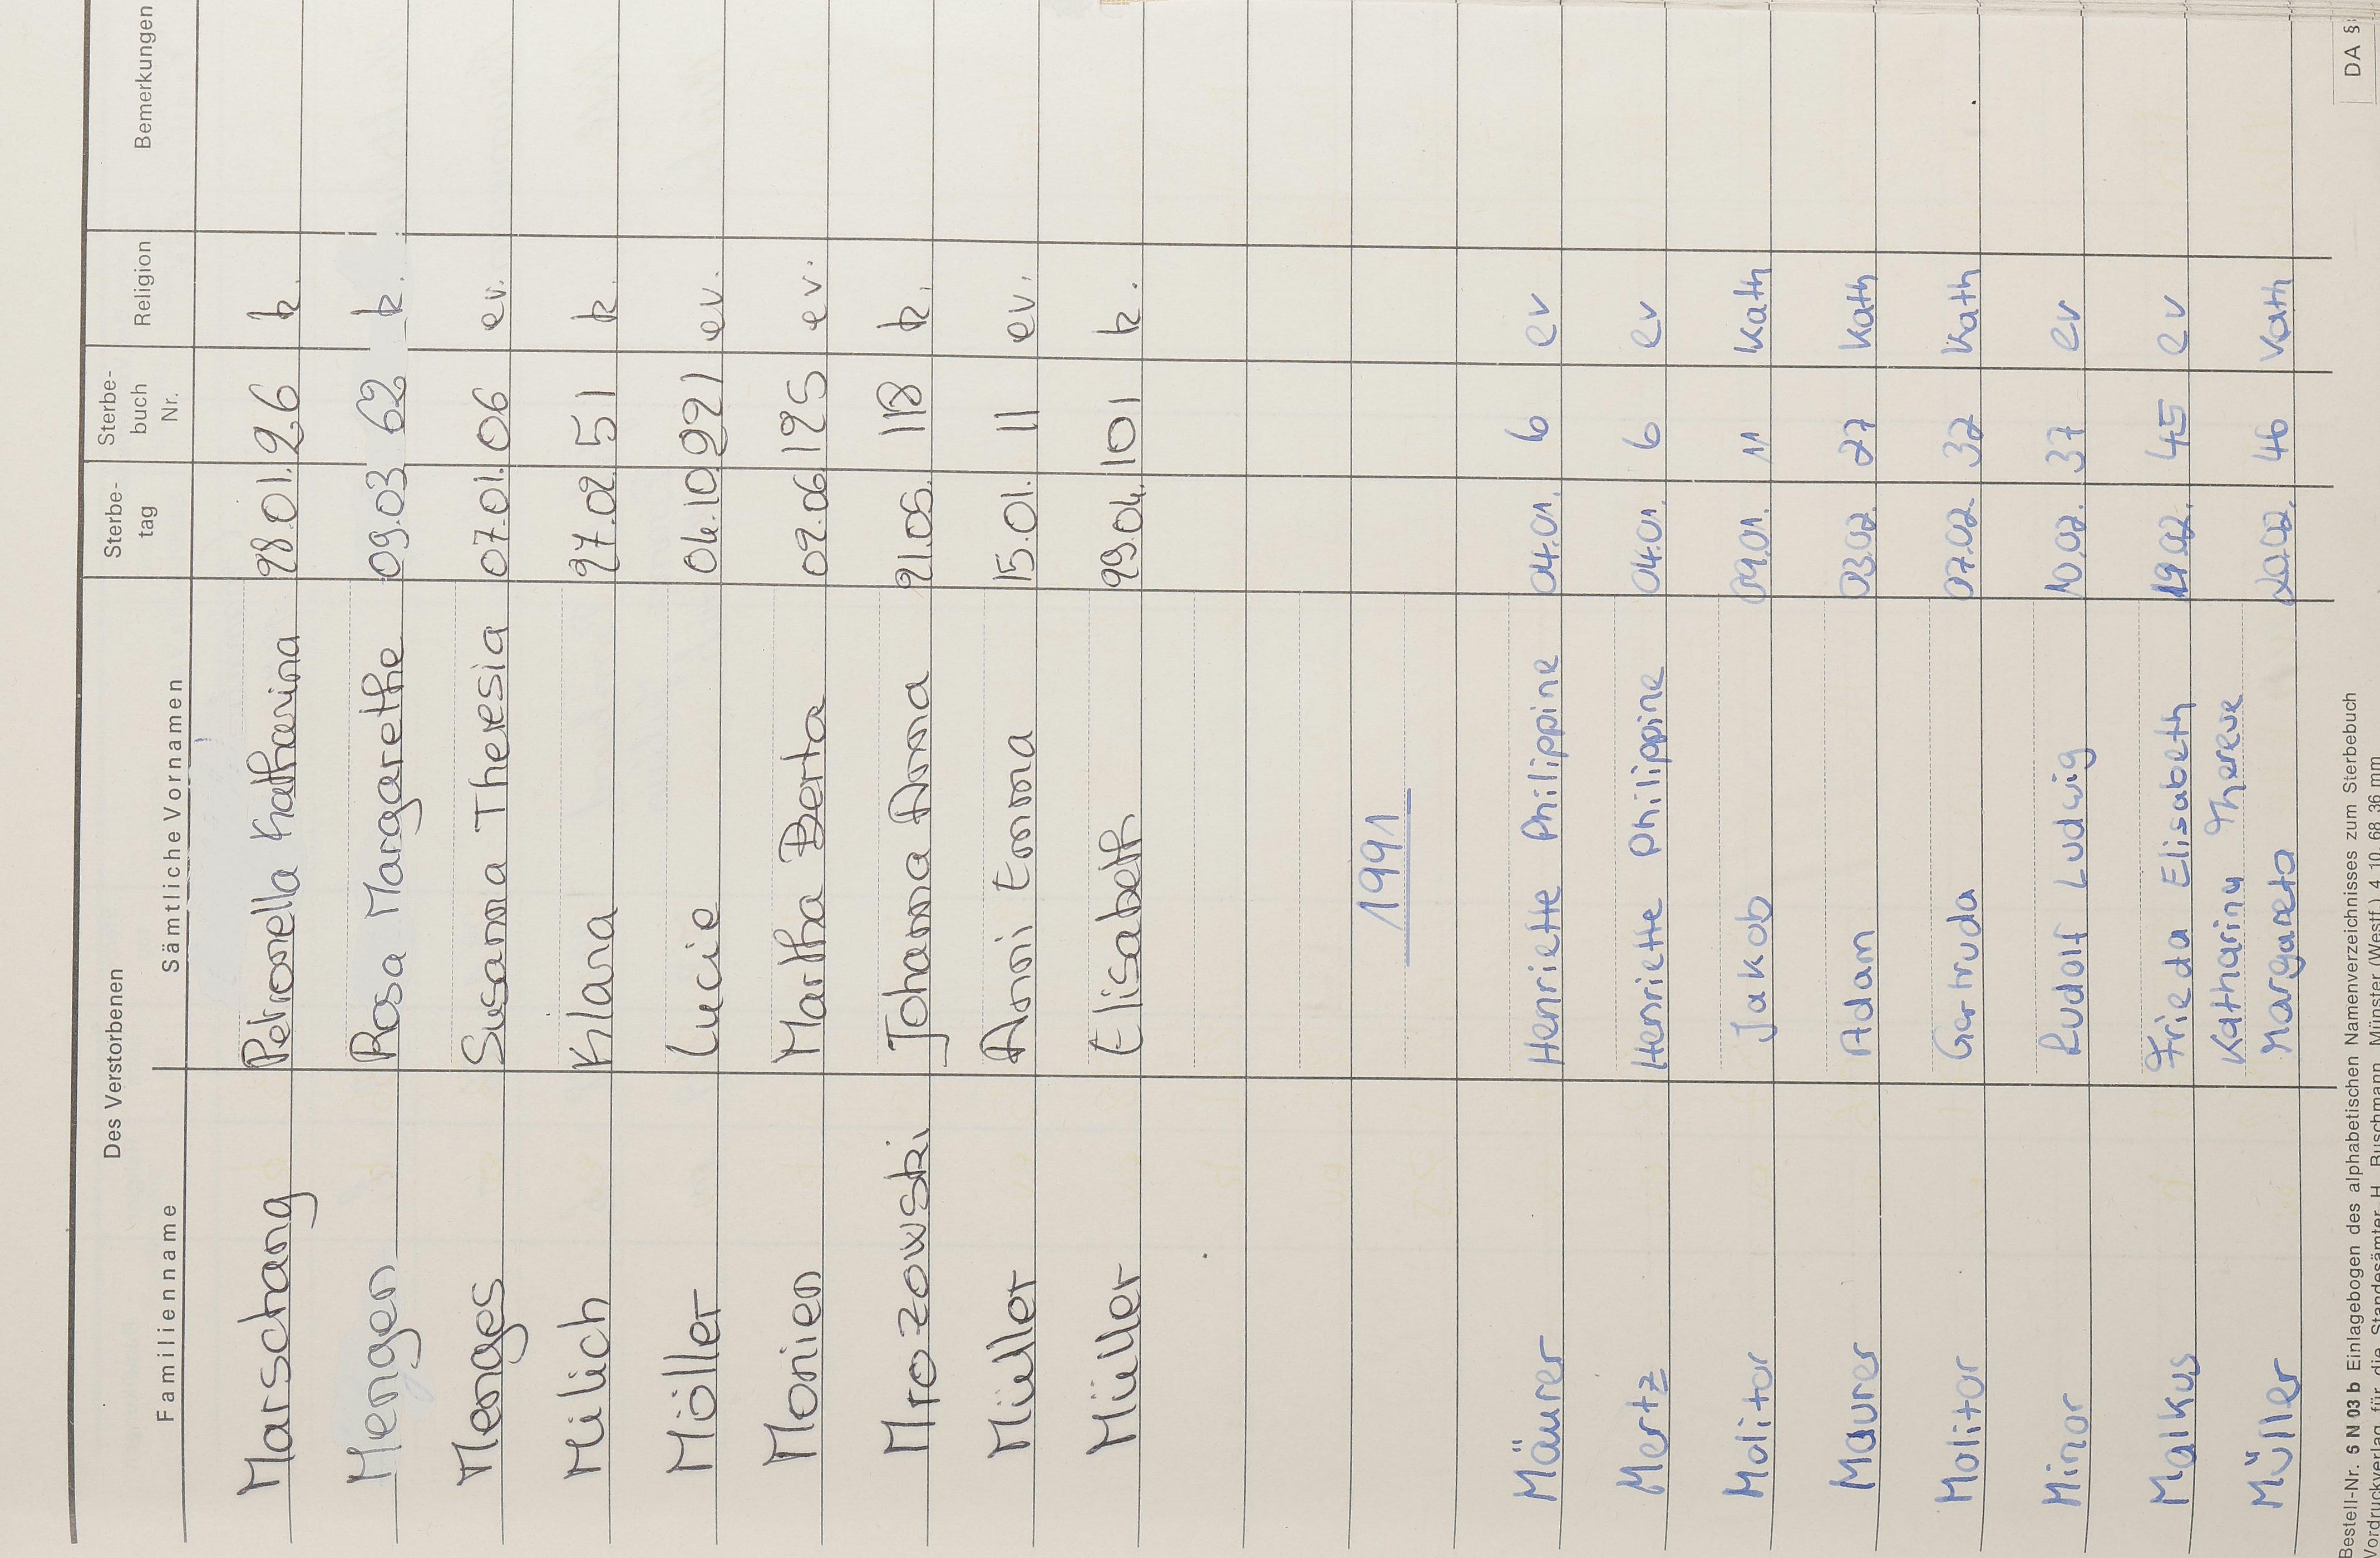 Des Verstorbenen
Familienname Sämtliche Vornamen Sterbe-tag Sterbe-buch Nr. Religion Bemerkungen
Marschang Petronella Katharina 28.01. 26 k.
Mengen Rosa Margarethe 09.03 62 k.
Menges Susanna Theresia 07.01. 06 ev.
Milich Klara 27.02. 51 k.
Möller Lucie 04.10. 221 ev.
Monien Martha Berta 02.06. 125 ev.
Mrozowski Johanna Anna 21.05. 118 k.
Müller Anni Emma 15.01. 11 ev.
Müller Elisabeth 29.04. 101 k.
1991
Mäurer Henriette Philippine 04.01. 6 ev
Mertz Henriette Philippine 04.01. 6 ev
Molitor Jakob 09.01. 11 Kath
Maurer Adam 03.02. 27 Kath
Molitor Gertruda 07.02. 32 Kath
Minor Rudolf Ludwig 10.02. 37 ev
Malkus Frieda Elisabeth 19.02. 45 ev
Katharina Therese
Müller Margareta 20.02. 46 Kath
Bestell-Nr. 5 N 03 b Einlagebogen des alphabetischen Namenverzeichnisses zum Sterbebuch
Vordruckverlag für die Standesämter H. Buschmann, Münster (Westf.) 4 10 68 36 mm
DA §